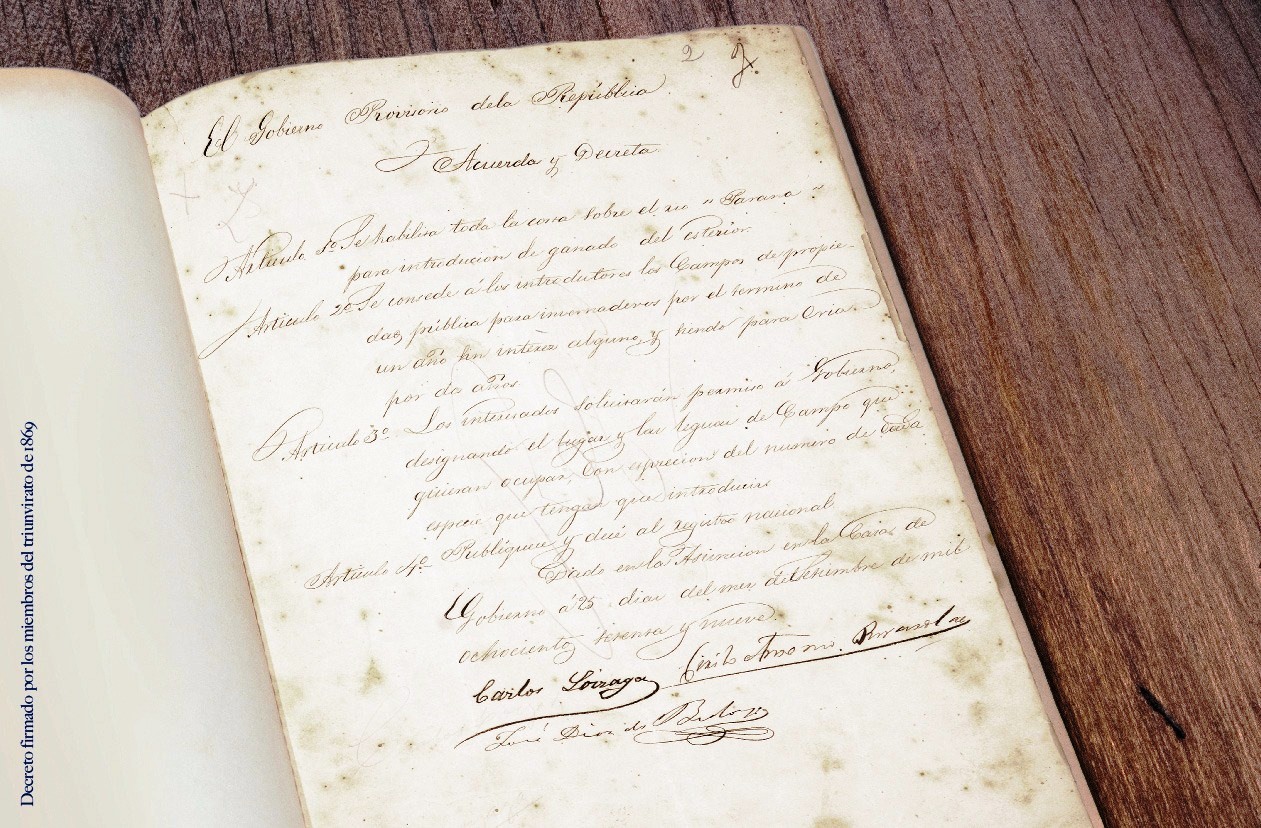 2 2.
El Gobierno Provisorio dela República
Acuerda y Decreta
Artículo 1º Se habilita toda la costa sobre el rio "Parana"
para introducion de ganado del esterior.
Artículo 2º Se consede á los introdutores los Campos de propie-
dad pública para invernaderos por el termino de
un año sin intèrez alguno, y siendo para Cria
por dos años
Artículo 3º Los interesados solicitarán permiso á Gobierno,
designando el lugar y las leguas de Campo que
quieran ocupar, con esprecion del numero de cada
especie que tengan que introducir
Artículo 4º Publíquese y dese al registro nacional
Dado en la Asuncion en la Casa de
Gobierno á 25 dias del mes de Setiembre de mil
ochocientos sesenta y nueve.
Carlos Loizaga Cirilo Antonio Rivarola
José Diaz de Bedoya
Decreto firmado por los miembros del triunvirato de 1869